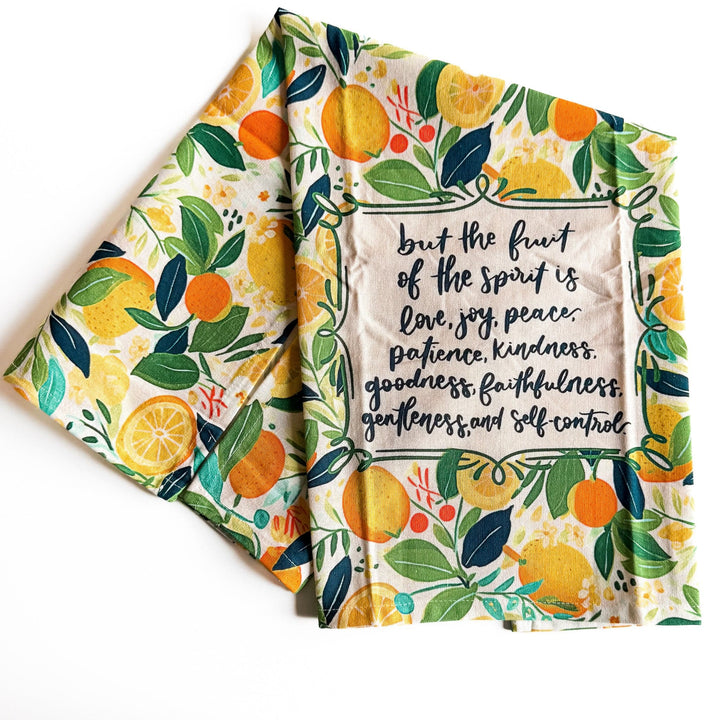 but the fruit
of the spirit is
love, joy, peace,
patience, kindness,
goodness, faithfulness,
gentleness, and self-control.